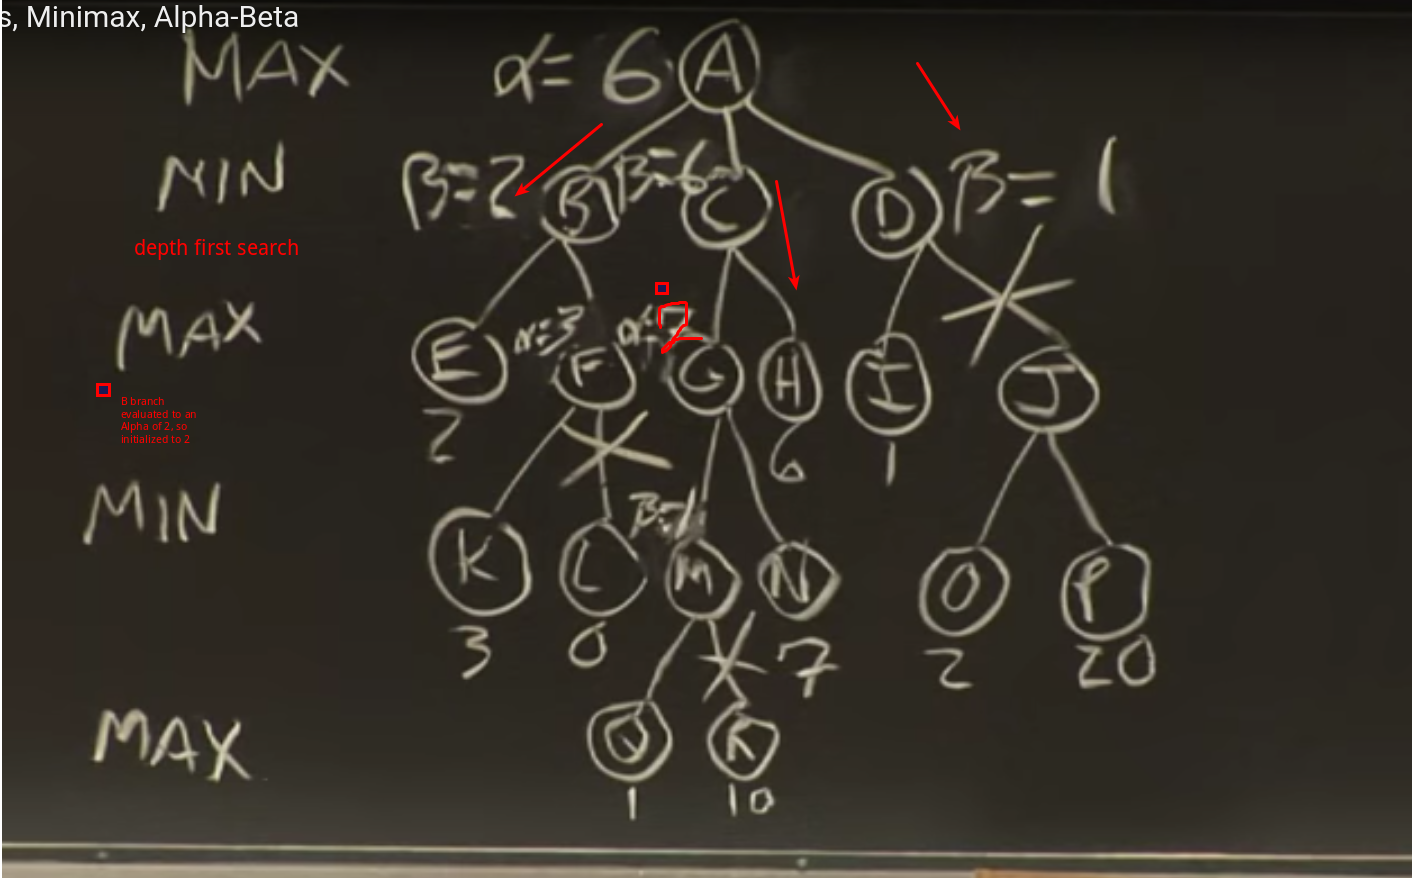 s, Minimax, Alpha-Beta
MAX α= 6 A
MIN β=2 B β=6 C D β= 1
depth first search
MAX E α=3 F G H I J
2 6 1
B branch
evaluated to an
Alpha of 2, so
initialized to 2
MIN K L β=1 M N O P
3 0 7 2 20
MAX Q R
1 10